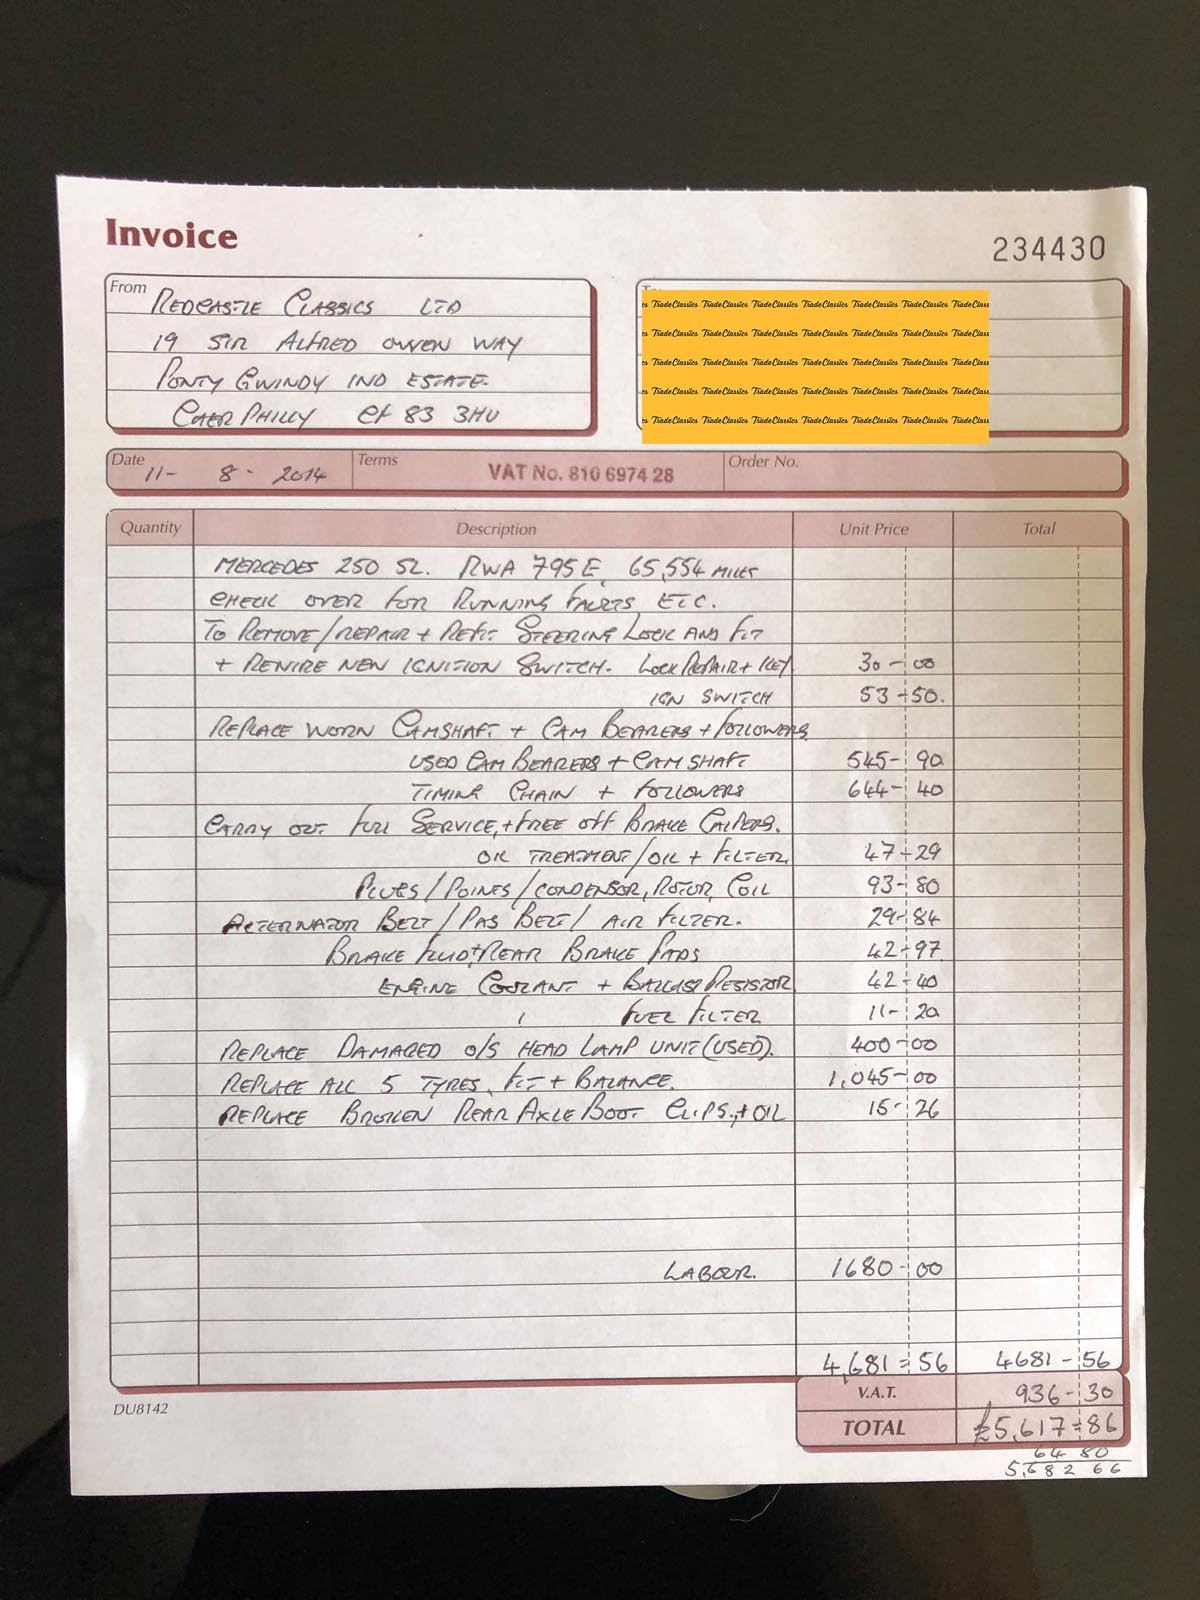 Invoice
234430
From REDCASTLE CLASSICS LTD
19 SIR ALFRED OWEN WAY
PONTY GWINDY IND ESTATE.
CAERPHILLY CF 83 3HU
TradeClassics TradeClassics TradeClassics TradeClassics TradeClassics TradeClassics TradeClass
TradeClassics TradeClassics TradeClassics TradeClassics TradeClassics TradeClassics TradeClass
TradeClassics TradeClassics TradeClassics TradeClassics TradeClassics TradeClassics TradeClass
TradeClassics TradeClassics TradeClassics TradeClassics TradeClassics TradeClassics TradeClass
TradeClassics TradeClassics TradeClassics TradeClassics TradeClassics TradeClassics TradeClass
Date 11- 8 - 2014 Terms VAT No. 810 6974 28 Order No.
Quantity Description Unit Price Total
MERCEDES 250 SL. RWA 795E, 65,554 MILES
CHECK OVER FOR RUNNING FAULTS ETC.
TO REMOVE/REPAIR + REFIT STEERING LOCK AND FIT
+ REWIRE NEW IGNITION SWITCH. LOCK REPAIR + KEY 30-00
IGN SWITCH 53-50.
REPLACE WORN CAMSHAFT + CAM BEARERS + FOLLOWERS
USED CAM BEARERS + CAMSHAFT 545-90
TIMING CHAIN + FOLLOWERS 644-40
CARRY OUT FULL SERVICE, + FREE OFF BRAKE CALIPERS.
OIL TREATMENT/OIL + FILTER 47-29
PLUGS/POINTS/CONDENSOR, ROTOR, COIL 93-80
ALTERNATOR BELT/PAS BELT/AIR FILTER. 29-84
BRAKE FLUID + REAR BRAKE PADS 42-97
ENGINE COOLANT + BALLAST RESISTOR 42-40
FUEL FILTER 11-20
REPLACE DAMAGED O/S HEAD LAMP UNIT (USED). 400-00
REPLACE ALL 5 TYRES, FIT + BALANCE. 1,045-00
REPLACE BROKEN REAR AXLE BOOT CLIPS, + OIL 15-26
LABOUR. 1680-00
4,681=56 4681-56
V.A.T. 936-30
DU8142
TOTAL £5,617=86
64 80
5,682 66